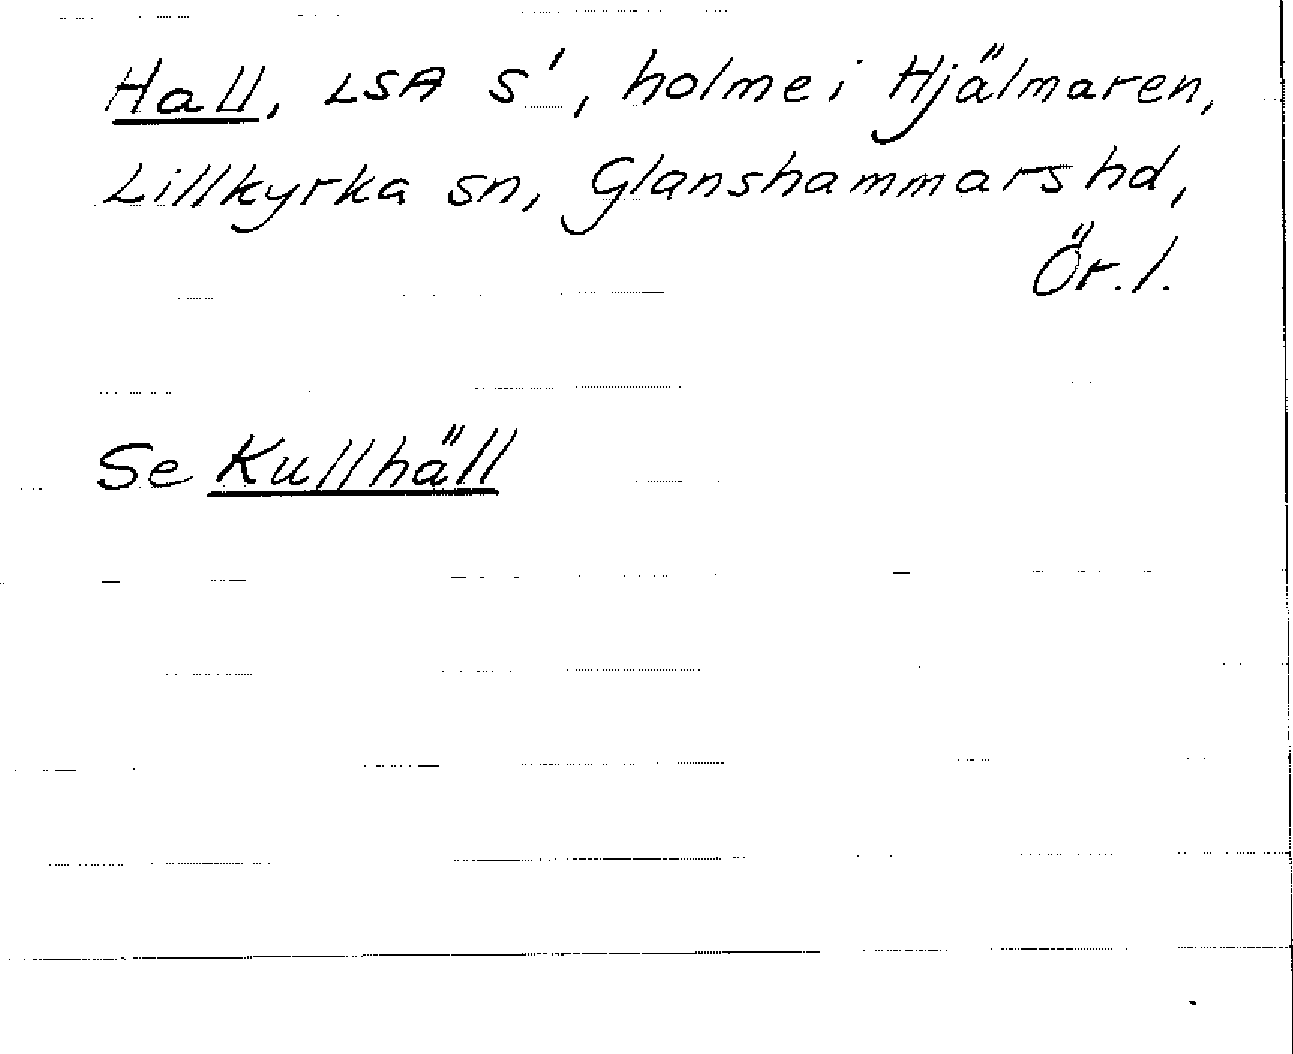 Hall, LSA S', holme i Hjälmaren,
Lillkyrka sn, Glanshammars hd,
Ör. l.
Se Kullhäll